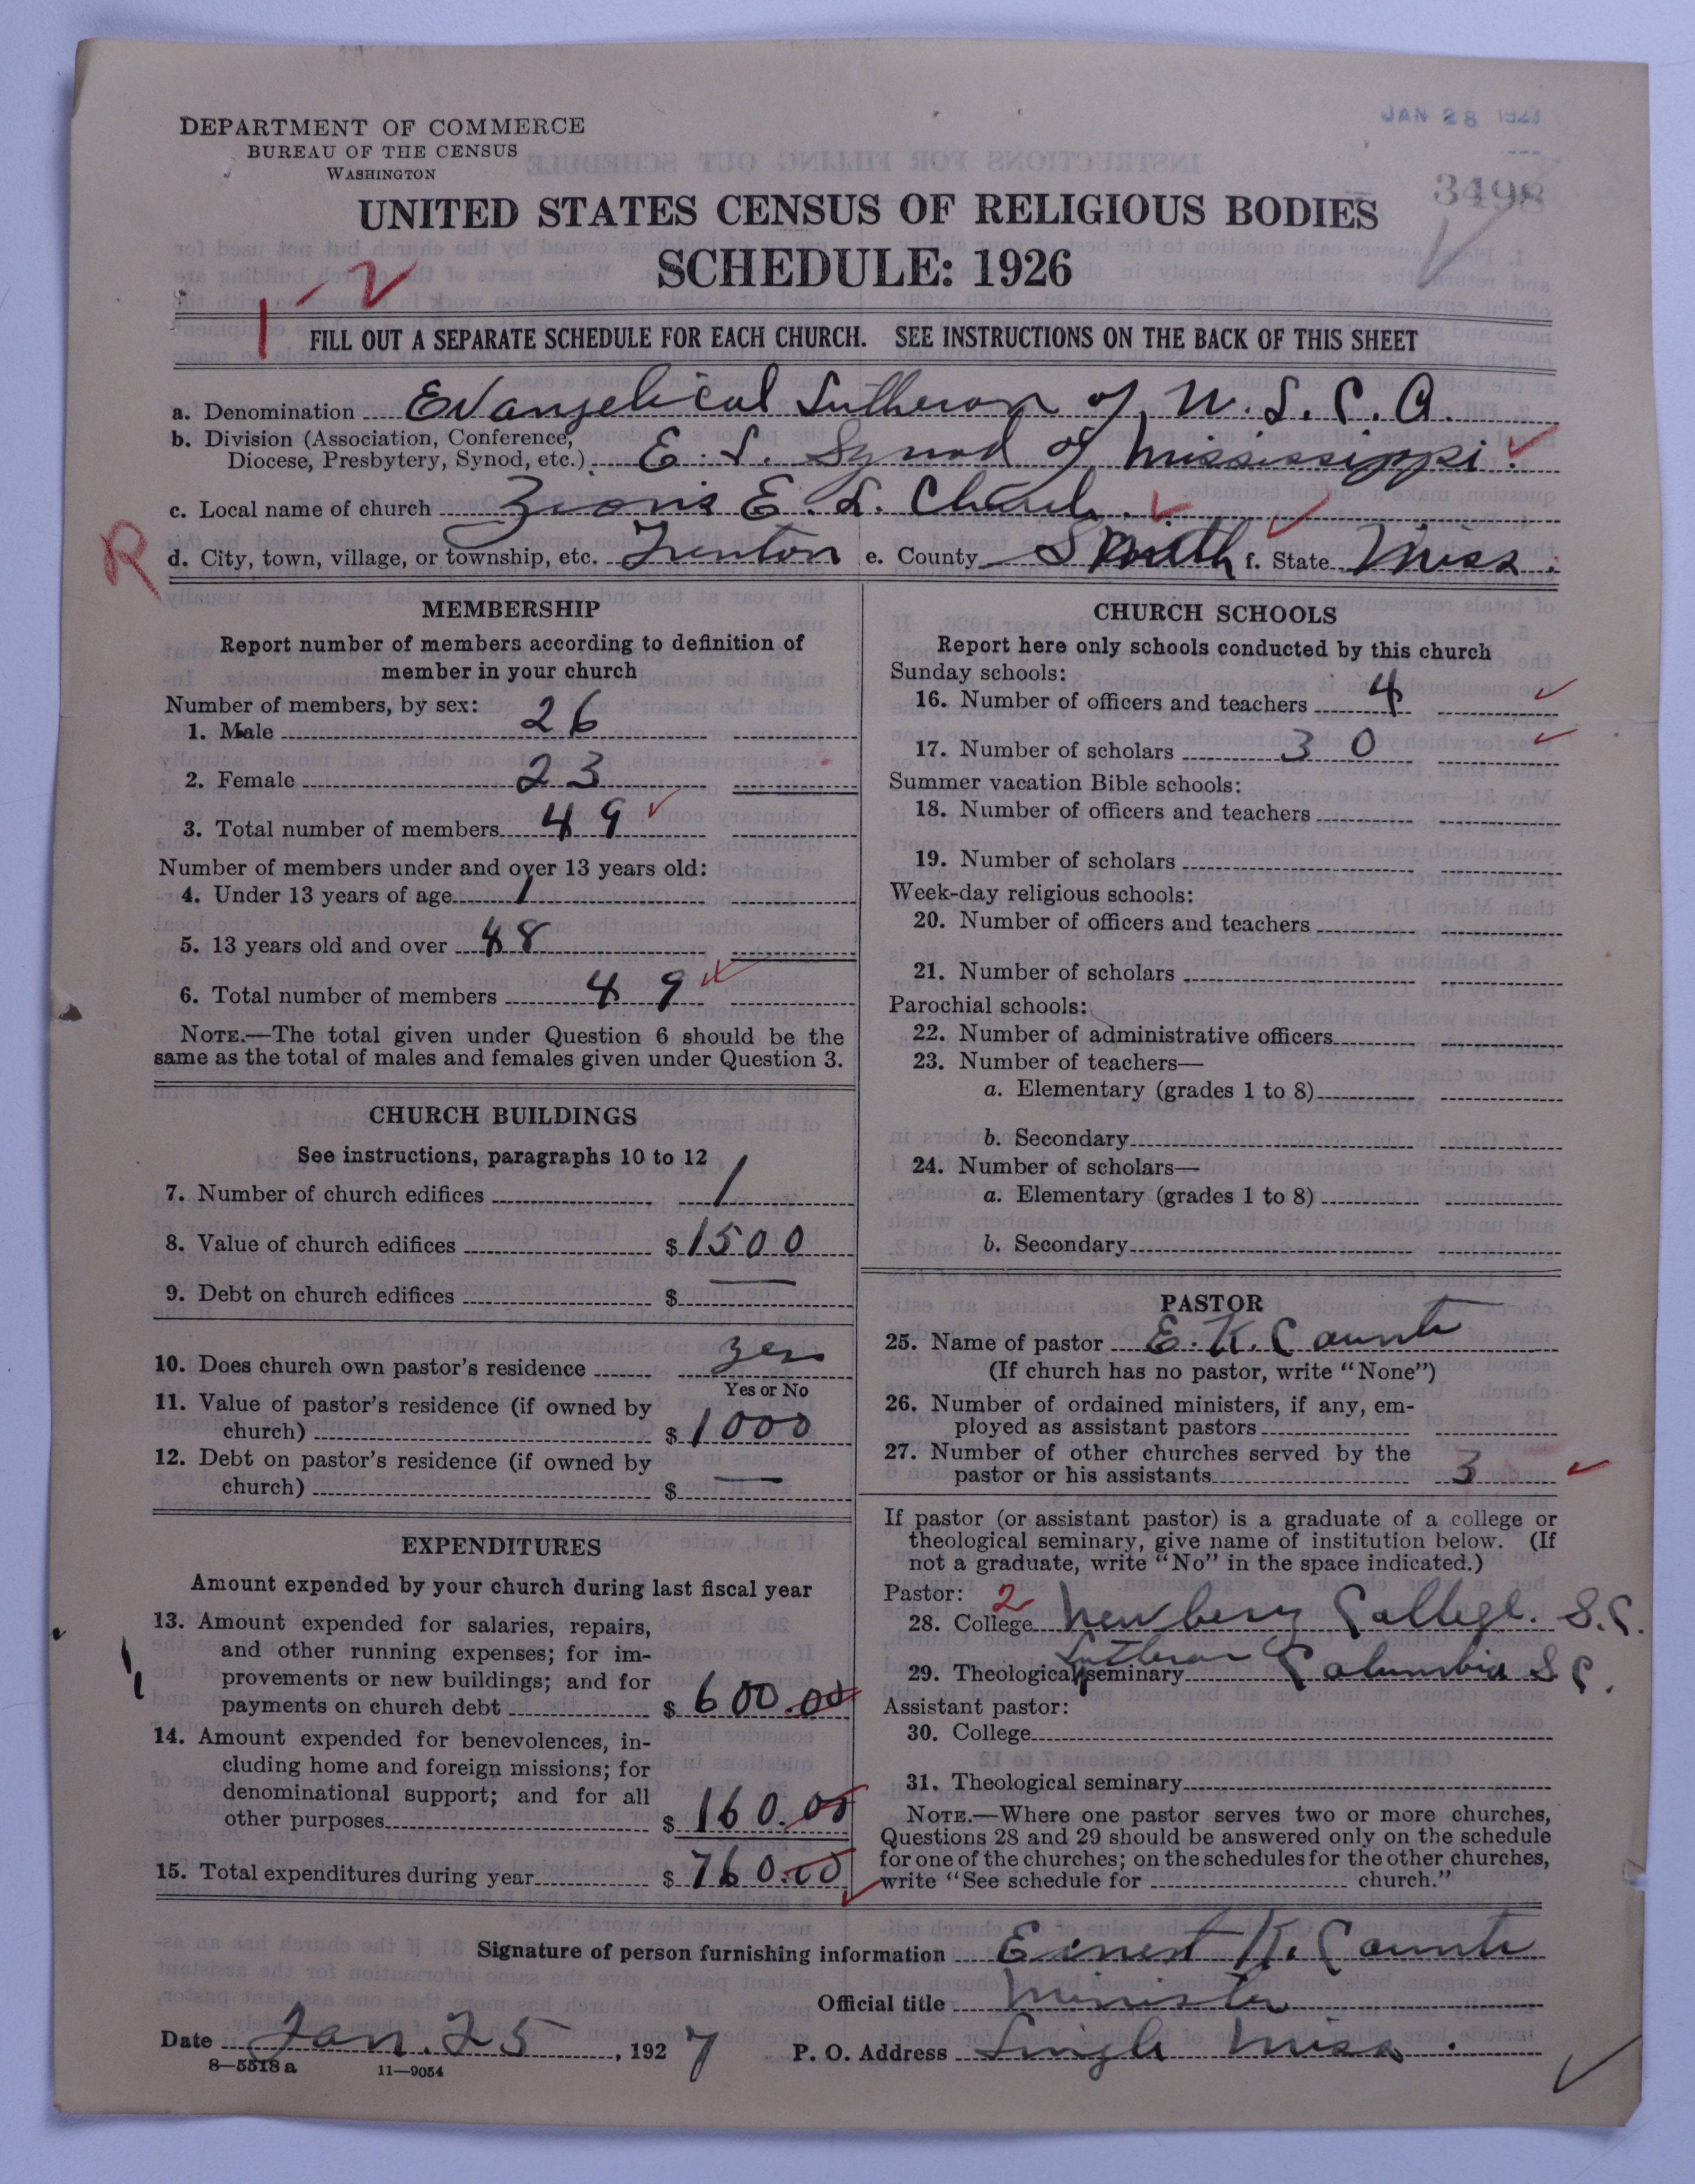 JAN 28 192
3498
DEPARTMENT OF COMMERCE
BUREAU OF THE CENSUS
WASHINGTON
UNITED STATES CENSUS OF RELIGIOUS BODIES
SCHEDULE: 1926
1-2
FILL OUT A SEPARATE SCHEDULE FOR EACH CHURCH. SEE INSTRUCTIONS ON THE BACK OF THIS SHEET
a. Denomination Evangelical Lutheran of U.L.C.A.
b. Division (Association, Conference,
Diocese, Presbytery, Synod, etc.) E. L. Synod of Mississippi.
c. Local name of church Zion's E. L. Church.
R
d. City, town, village, or township, etc. Trenton e. County Smith f. State Miss.
MEMBERSHIP
Report number of members according to definition of
member in your church
Number of members, by sex:
1. Male 26
2. Female 23
3. Total number of members 49
Number of members under and over 13 years old:
4. Under 13 years of age 1
5. 13 years old and over 48
6. Total number of members 49
NOTE.—The total given under Question 6 should be the
same as the total of males and females given under Question 3.
CHURCH BUILDINGS
See instructions, paragraphs 10 to 12
7. Number of church edifices 1
8. Value of church edifices $1500
9. Debt on church edifices $ —
10. Does church own pastor's residence yes
Yes or No
11. Value of pastor's residence (if owned by
church) $1000
12. Debt on pastor's residence (if owned by
church) $ —
EXPENDITURES
Amount expended by your church during last fiscal year
13. Amount expended for salaries, repairs,
and other running expenses; for im-
provements or new buildings; and for
payments on church debt $600.00
14. Amount expended for benevolences, in-
cluding home and foreign missions; for
denominational support; and for all
other purposes $160.00
15. Total expenditures during year $760.00
CHURCH SCHOOLS
Report here only schools conducted by this church
Sunday schools:
16. Number of officers and teachers 4
17. Number of scholars 30
Summer vacation Bible schools:
18. Number of officers and teachers
19. Number of scholars
Week-day religious schools:
20. Number of officers and teachers
21. Number of scholars
Parochial schools:
22. Number of administrative officers
23. Number of teachers—
a. Elementary (grades 1 to 8)
b. Secondary
24. Number of scholars—
a. Elementary (grades 1 to 8)
b. Secondary
PASTOR
25. Name of pastor E. K. Counts
(If church has no pastor, write "None")
26. Number of ordained ministers, if any, em-
ployed as assistant pastors
27. Number of other churches served by the
pastor or his assistants 3
If pastor (or assistant pastor) is a graduate of a college or
theological seminary, give name of institution below. (If
not a graduate, write "No" in the space indicated.)
Pastor: 2
28. College Newberry College. S.C.
29. Theological seminary Lutheran Columbia S C.
Assistant pastor:
30. College
31. Theological seminary
NOTE.—Where one pastor serves two or more churches,
Questions 28 and 29 should be answered only on the schedule
for one of the churches; on the schedules for the other churches,
write "See schedule for church."
Signature of person furnishing information Ernest K. Counts
Official title Minister
Date Jan. 25, 1927 P. O. Address Lingle Miss.
8—5518a 11—9054